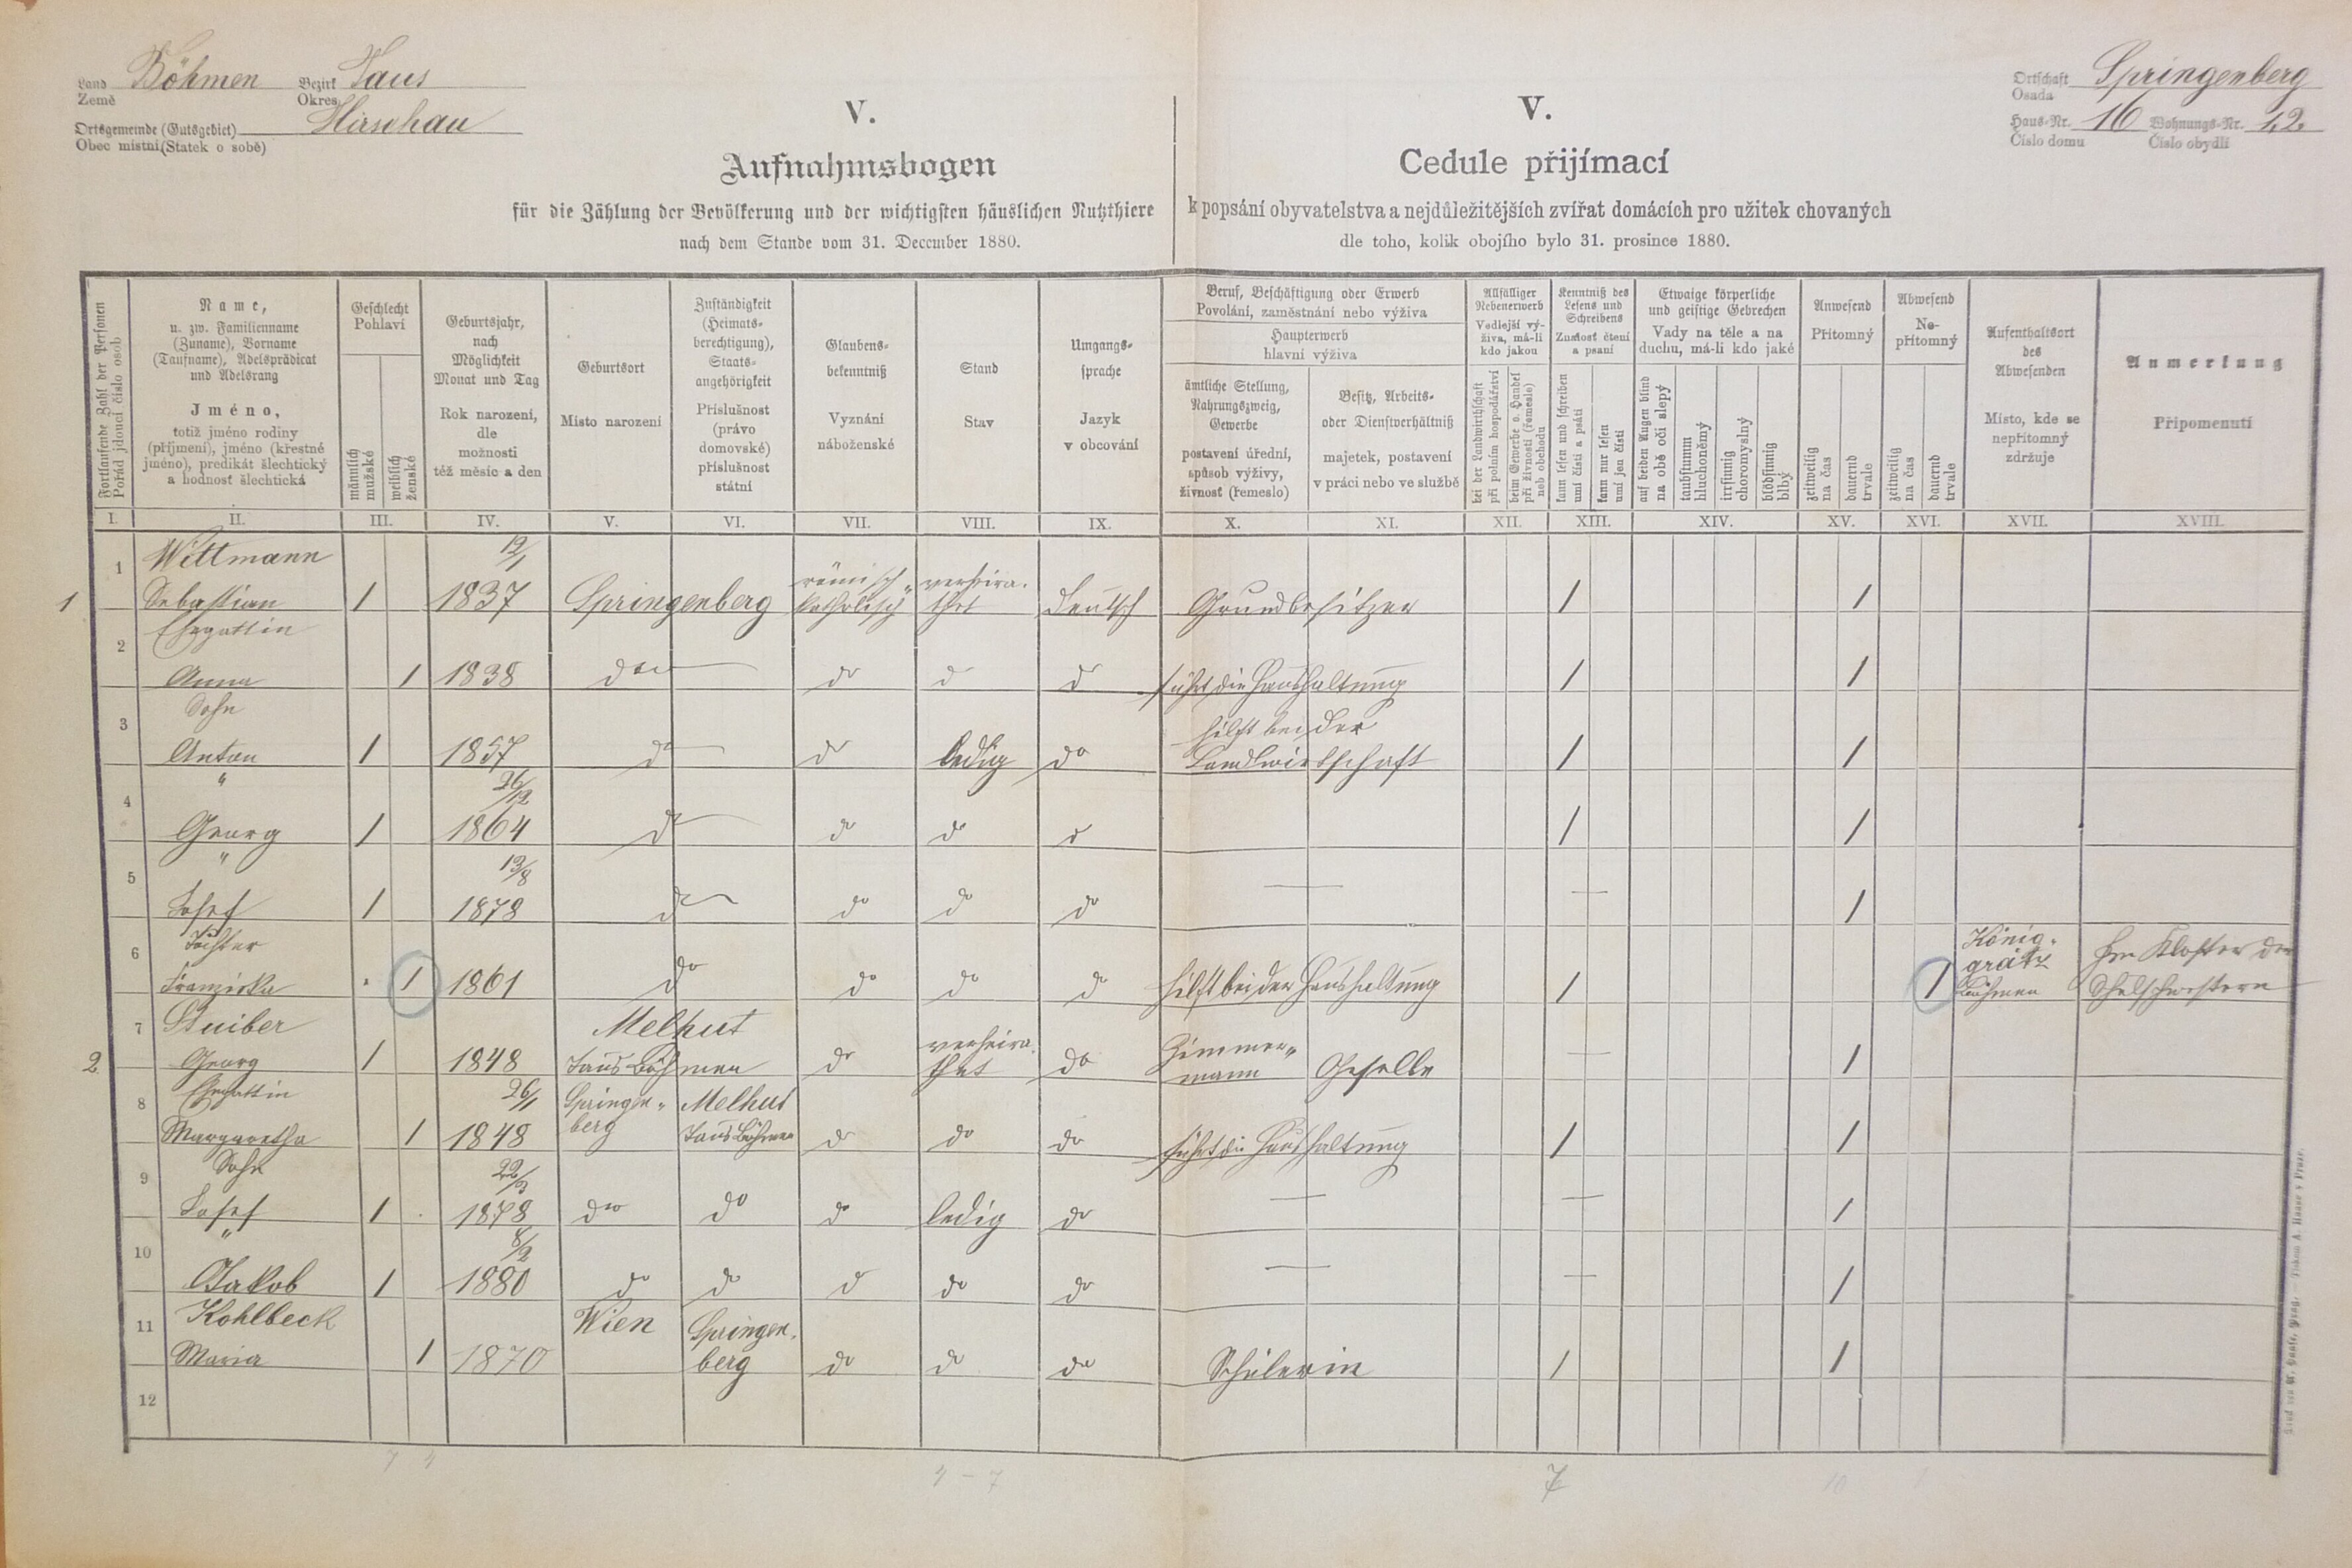 Land Böhmen Bezirk Taus
Země Okres
Ortsgemeinde (Gutsgebiet) Hirschau
Obec místní (Statek o sobě)
Ortschaft Springenberg
Osada
Haus-Nr. 16 Wohnungs-Nr. 1,2.
Číslo domu Číslo obydlí
V.
Aufnahmsbogen
für die Zählung der Bevölkerung und der wichtigsten häuslichen Nutzthiere
nach dem Stande vom 31. December 1880.
V.
Cedule přijímací
k popsání obyvatelstva a nejdůležitějších zvířat domácích pro užitek chovaných
dle toho, kolik obojího bylo 31. prosince 1880.
Fortlaufende Zahl der Personen
Pořád jdoucí číslo osob
Name,
u. zw. Familienname
(Zuname), Vorname
(Taufname), Adelsprädicat
und Adelsrang
Jméno,
totiž jméno rodiny
(příjmení), jméno (křestné
jméno), predikát šlechtický
a hodnosť šlechtická
Geschlecht
Pohlaví
männlich
mužské
weiblich
ženské
Geburtsjahr,
nach
Möglichkeit
Monat und Tag
Rok narození,
dle
možnosti
též měsíc a den
Geburtsort
Místo narození
Zuständigkeit
(Heimats-
berechtigung),
Staats-
angehörigkeit
Příslušnost
(právo
domovské)
příslušnost
státní
Glaubens-
bekenntniß
Vyznání
náboženské
Stand
Stav
Umgangs-
sprache
Jazyk
v obcování
Beruf, Beschäftigung oder Erwerb
Povolání, zaměstnání nebo výživa
Haupterwerb
hlavní výživa
ämtliche Stellung,
Nahrungszweig,
Gewerbe
postavení úřední,
spůsob výživy,
živnosť (řemeslo)
Besitz, Arbeits-
oder Dienstverhältniß
majetek, postavení
v práci nebo ve službě
Allfälliger
Nebenerwerb
Vedlejší vý-
živa, má-li
kdo jakou
bei der Landwirthschaft
při polním hospodářství
beim Gewerbe o. Handel
při živnosti (řemesle)
neb obchodu
Kenntniß des
Lesens und
Schreibens
Známosť čtení
a psaní
kann lesen und schreiben
umí čísti a psáti
kann nur lesen
umí jen čísti
Etwaige körperliche
und geistige Gebrechen
Vady na těle a na
duchu, má-li kdo jaké
auf beiden Augen blind
na obě oči slepý
taubstumm
hluchoněmý
irrsinnig
choromyslný
blödsinnig
blbý
Anwesend
Přítomný
zeitweilig
na čas
dauernd
trvale
Abwesend
Ne-
přítomný
zeitweilig
na čas
dauernd
trvale
Aufenthaltsort
des
Abwesenden
Místo, kde se
nepřítomný
zdržuje
Anmerkung
Připomenutí
I. II. III. IV. V. VI. VII. VIII. IX. X. XI. XII. XIII. XIV. XV. XVI. XVII. XVIII.
1 Wittmann 12/1
1 Sebastian 1 1837 Springenberg römisch-katholisch verheirathet deutsch Grundbesitzer 1 1
2 Ehegattin
Anna 1 1838 dto do d d führt die Haushaltung 1 1
3 Sohn
Anton 1 1857 do do ledig do hilft bei der Landwirtschaft 1 1
4 " 26/12
Georg 1 1864 do do do d 1 1
5 " 13/8
Josef 1 1878 do do do do — — 1
6 Tochter
Franziska 1 1861 do do do do hilft bei der Haushaltung 1 1 König-grätz Böhmen Im Kloster der Schulschwestern
7 Stuiber
2. Georg 1 1848 Melhut Taus Böhmen do verheirathet do Zimmermann Geselle — 1
8 Ehegattin 26/1
Margaretha 1 1848 Springenberg Melhut Taus Böhmen do do do führt die Haushaltung 1 1
9 Sohn 22/3
Josef 1 1878 dto do do ledig do — — 1
10 " 8/2
Jakob 1 1880 do do d do do — — 1
11 Kohlbeck
Maria 1 1870 Wien Springenberg do do do Schülerin 1 1
12
7 4
4 – 7
7
10 1